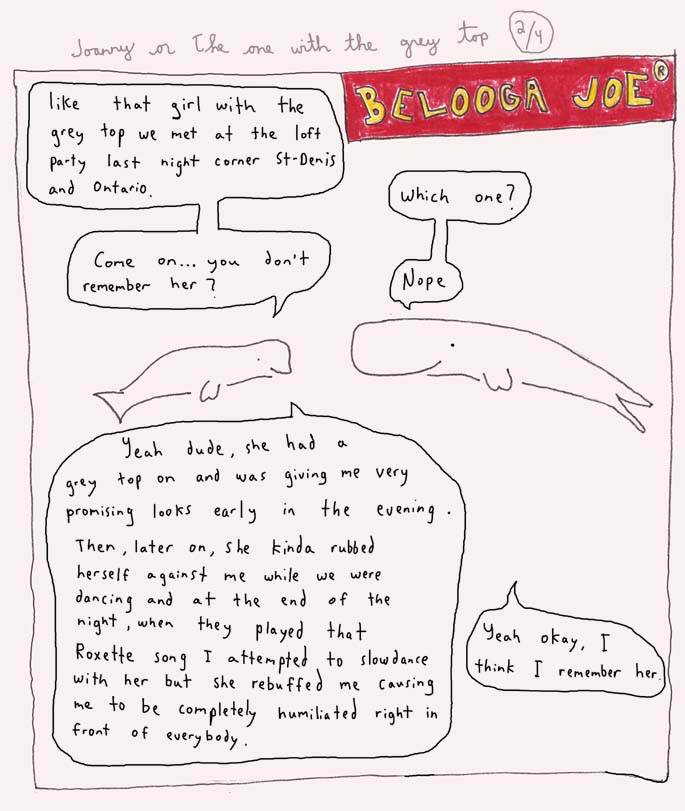 Joanny or The one with the grey top 2/4
BELOOGA JOE®
like that girl with the
grey top we met at the loft
party last night corner St-Denis
and Ontario.
Which one?
Come on... you don't
remember her?
Nope
Yeah dude, she had a
grey top on and was giving me very
promising looks early in the evening.
Then, later on, she kinda rubbed
herself against me while we were
dancing and at the end of the
night, when they played that
Roxette song I attempted to slowdance
with her but she rebuffed me causing
me to be completely humiliated right in
front of everybody.
Yeah okay, I
think I remember her.